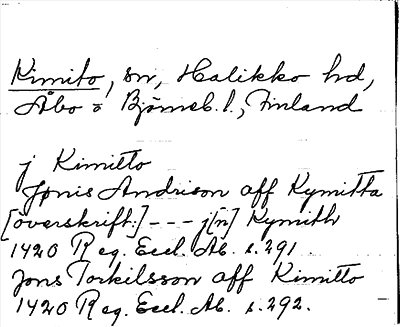 Kimito, sn, Halikko hd,
Åbo o Björneb. l., Finland
j Kimitto
Jønis Andrison aff Kymitta
[överskrift:] --- j[n] Kymith
1420 Reg. Eccl. Ab. s. 291
Jons Torkilsson aff Kimitto
1420 Reg. Eccl. Ab. s. 292.